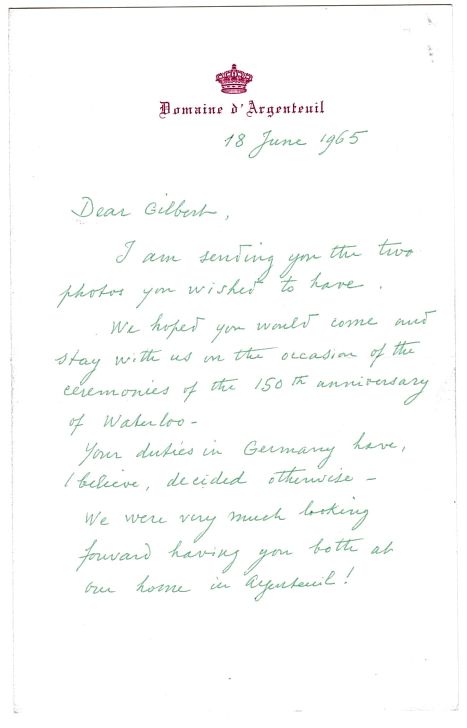 Domaine d'Argenteuil
18 June 1965
Dear Gilbert,
I am sending you the two
photos you wished to have.
We hoped you would come and
stay with us on the occasion of the
ceremonies of the 150th anniversary
of Waterloo -
Your duties in Germany have,
I believe, decided otherwise -
We were very much looking
forward having you both at
our home in Argenteuil!